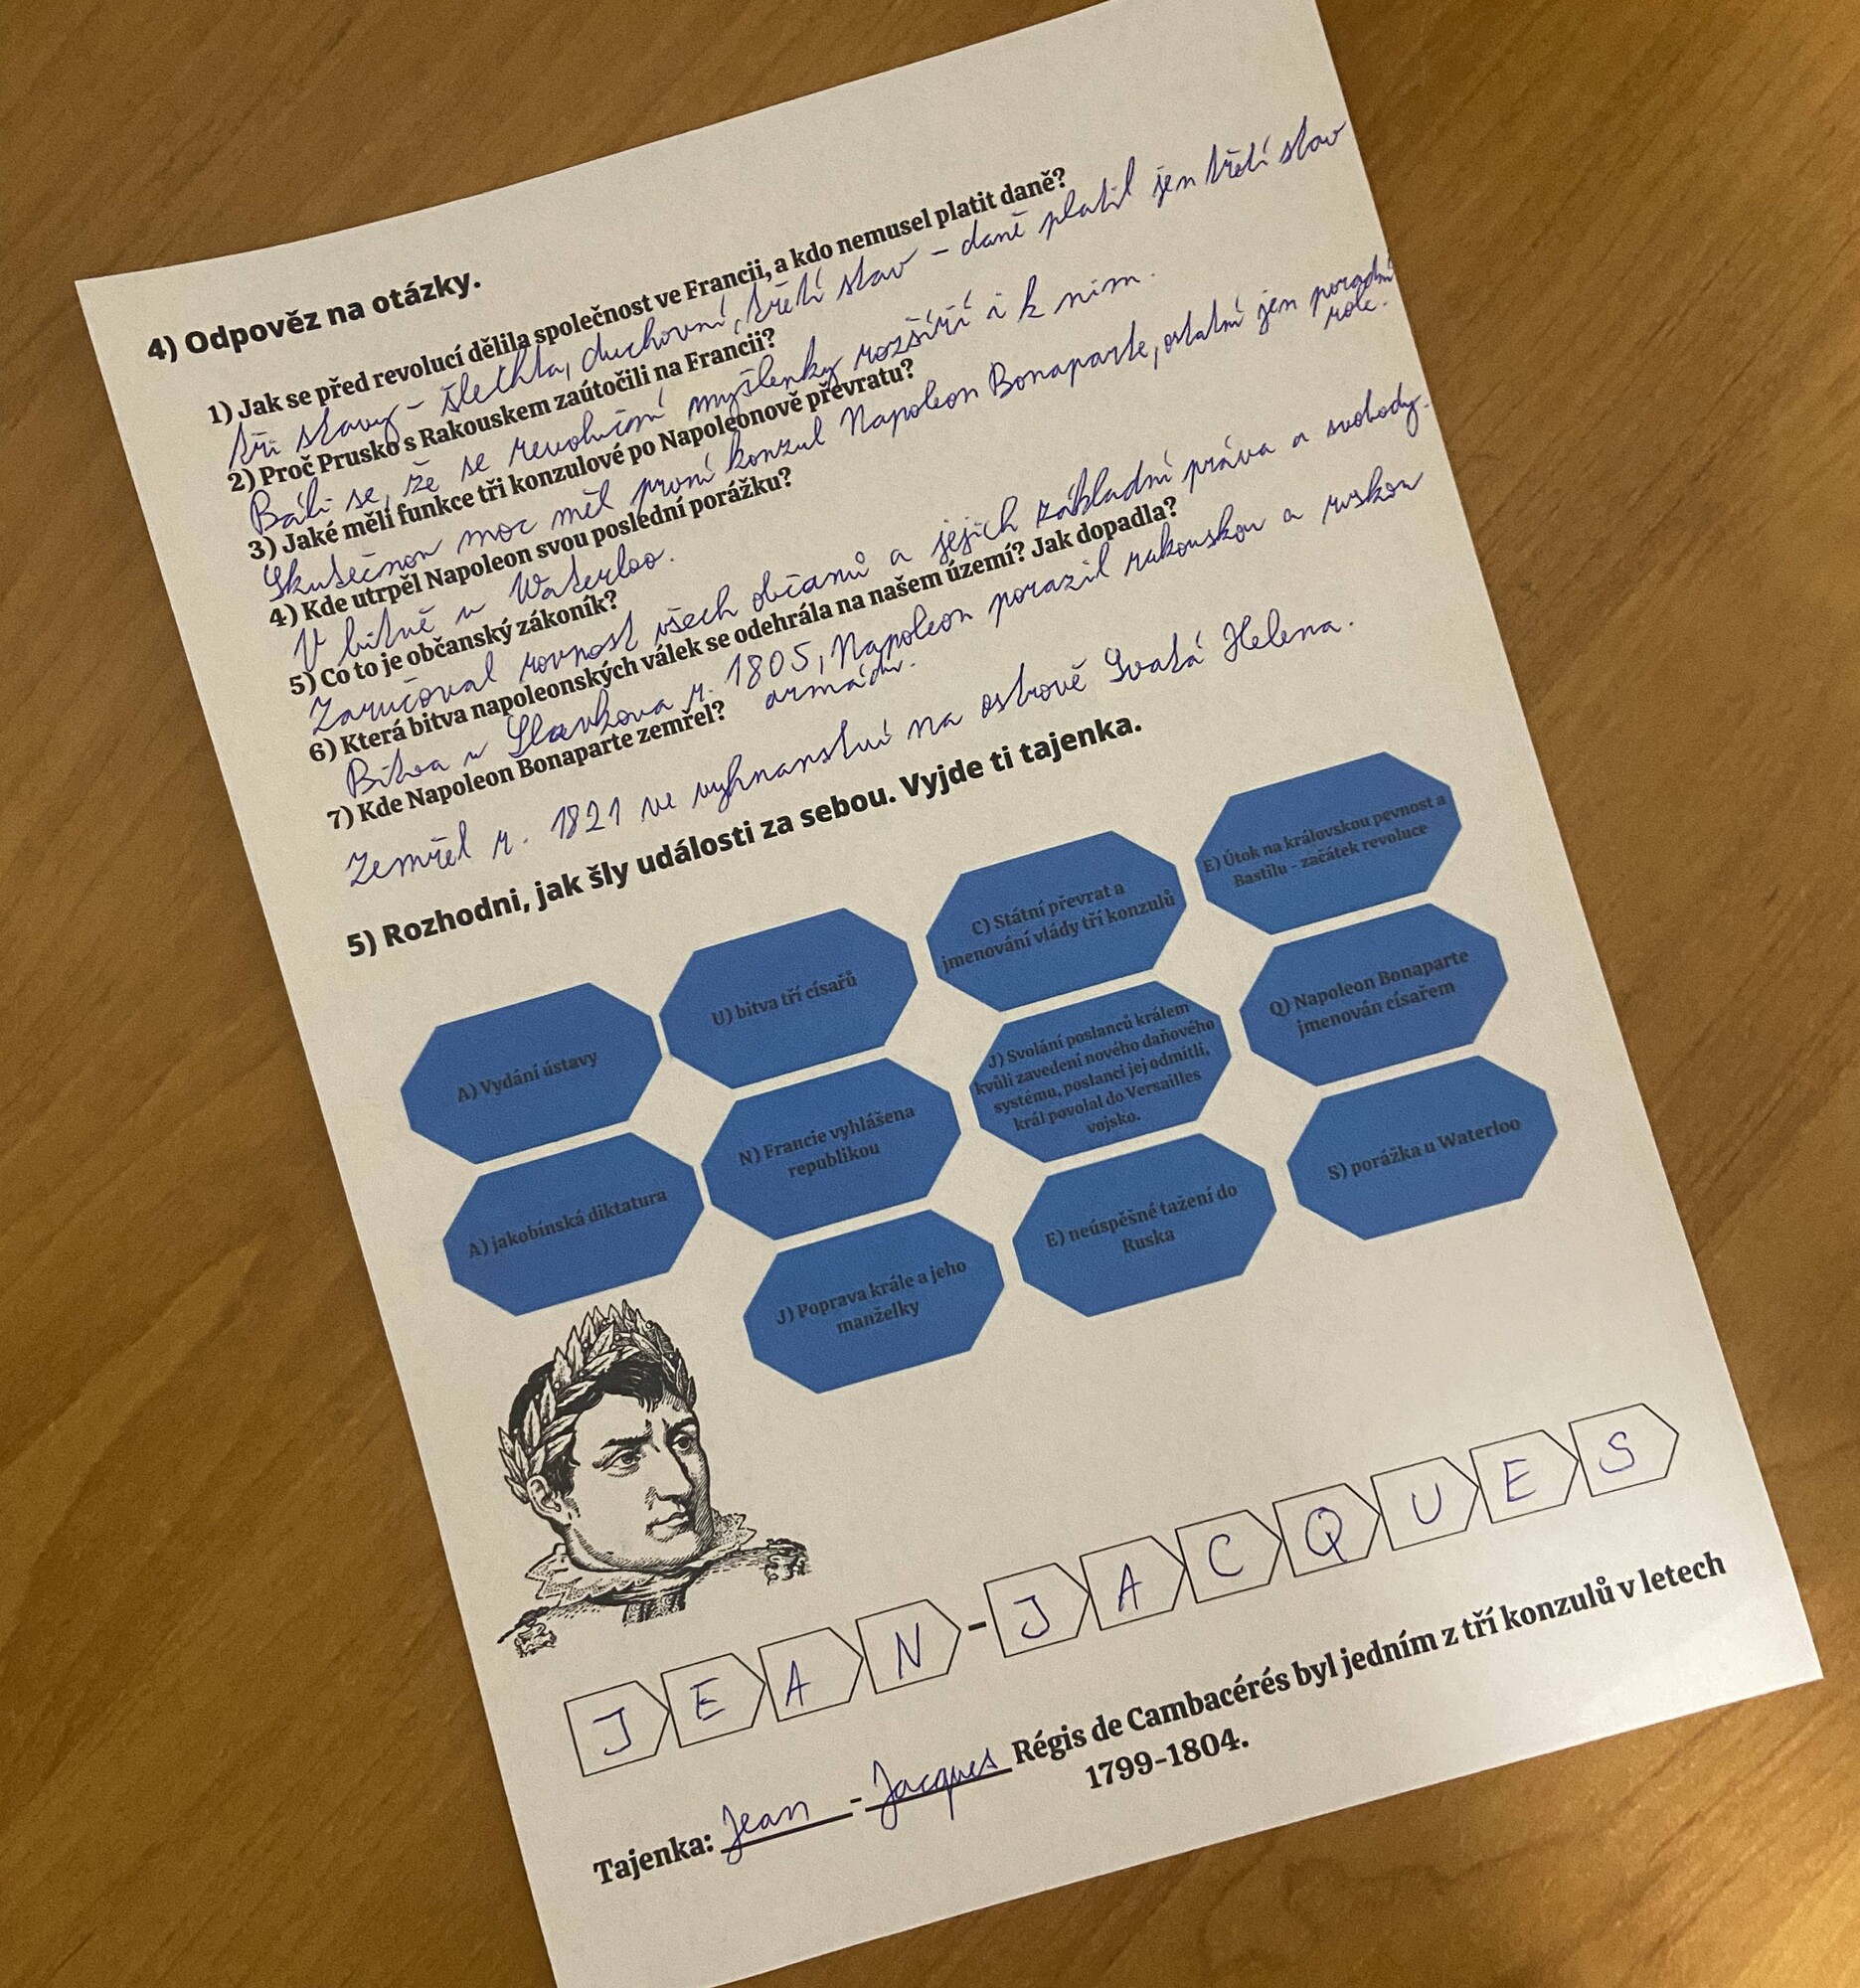 4) Odpověz na otázky.
1) Jak se před revolucí dělila společnost ve Francii, a kdo nemusel platit daně?
tři stavy - šlechta, duchovní, třetí stav - daně platil jen třetí stav
2) Proč Prusko s Rakouskem zaútočili na Francii?
Báli se, že se revoluční myšlenky rozšíří i k nim.
3) Jaké měli funkce tři konzulové po Napoleonově převratu?
Skutečnou moc měl první konzul Napoleon Bonaparte, ostatní jen poradní
role.
4) Kde utrpěl Napoleon svou poslední porážku?
V bitvě u Waterloo.
5) Co to je občanský zákoník?
Zaručoval rovnost všech občanů a jejich základní práva a svobody.
6) Která bitva napoleonských válek se odehrála na našem území? Jak dopadla?
Bitva u Slavkova r. 1805, Napoleon porazil rakouskou a ruskou
armádu.
7) Kde Napoleon Bonaparte zemřel?
Zemřel r. 1821 ve vyhnanství na ostrově Svatá Helena.
5) Rozhodni, jak šly události za sebou. Vyjde ti tajenka.
A) Vydání ústavy
U) bitva tří císařů
C) Státní převrat a
jmenování vlády tří konzulů
E) Útok na královskou pevnost a
Bastilu - začátek revoluce
A) jakobínská diktatura
N) Francie vyhlášena
republikou
J) Svolání poslanců králem
kvůli zavedení nového daňového
systému, poslanci jej odmítli,
král povolal do Versailles
vojsko.
Q) Napoleon Bonaparte
jmenován císařem
J) Poprava krále a jeho
manželky
E) neúspěšné tažení do
Ruska
S) porážka u Waterloo
J E A N - J A C Q U E S
Tajenka: Jean - Jacques Régis de Cambacérés byl jedním z tří konzulů v letech
1799-1804.